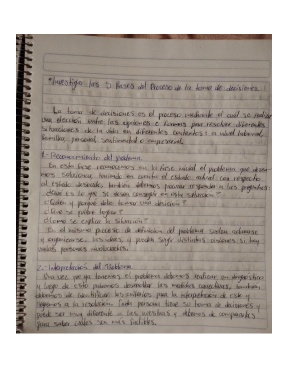 *Investiga las 5 fases del Proceso de la toma de decisiones.
La toma de decisiones es el proceso mediante el cual se realiza
una elección entre las opciones o formas para resolver diferentes
situaciones de la vida en diferentes contextos: a nivel laboral,
familiar, personal, sentimental o empresarial.
1.- Reconocimiento del problema.
En esta fase
el problema que
solucionar, teniendo en cuenta el estado actual con respecto
al estado deseado, también debemos
responder a las preguntas:
¿Qué es lo que se desea conseguir en esta situación?
¿Quién y porqué debe tomar una decisión?
¿Qué se puede lograr?
¿Cómo se explica la situación?
En el mismo proceso de definición del problema
y
las ideas, y puede
distintas
si hay
varias personas involucradas.
2.- Interpretación del Problema
Una vez que ya tenemos el problema debemos realizar un diagnóstico
y luego de esto podemos desarrollar las medidas
debemos de
los criterios para la interpretación de este y
llegamos a la resolución. Cada persona tiene su toma de decisiones y
puede ser muy diferente a las nuestras y
de
para saber cuáles son más factibles.